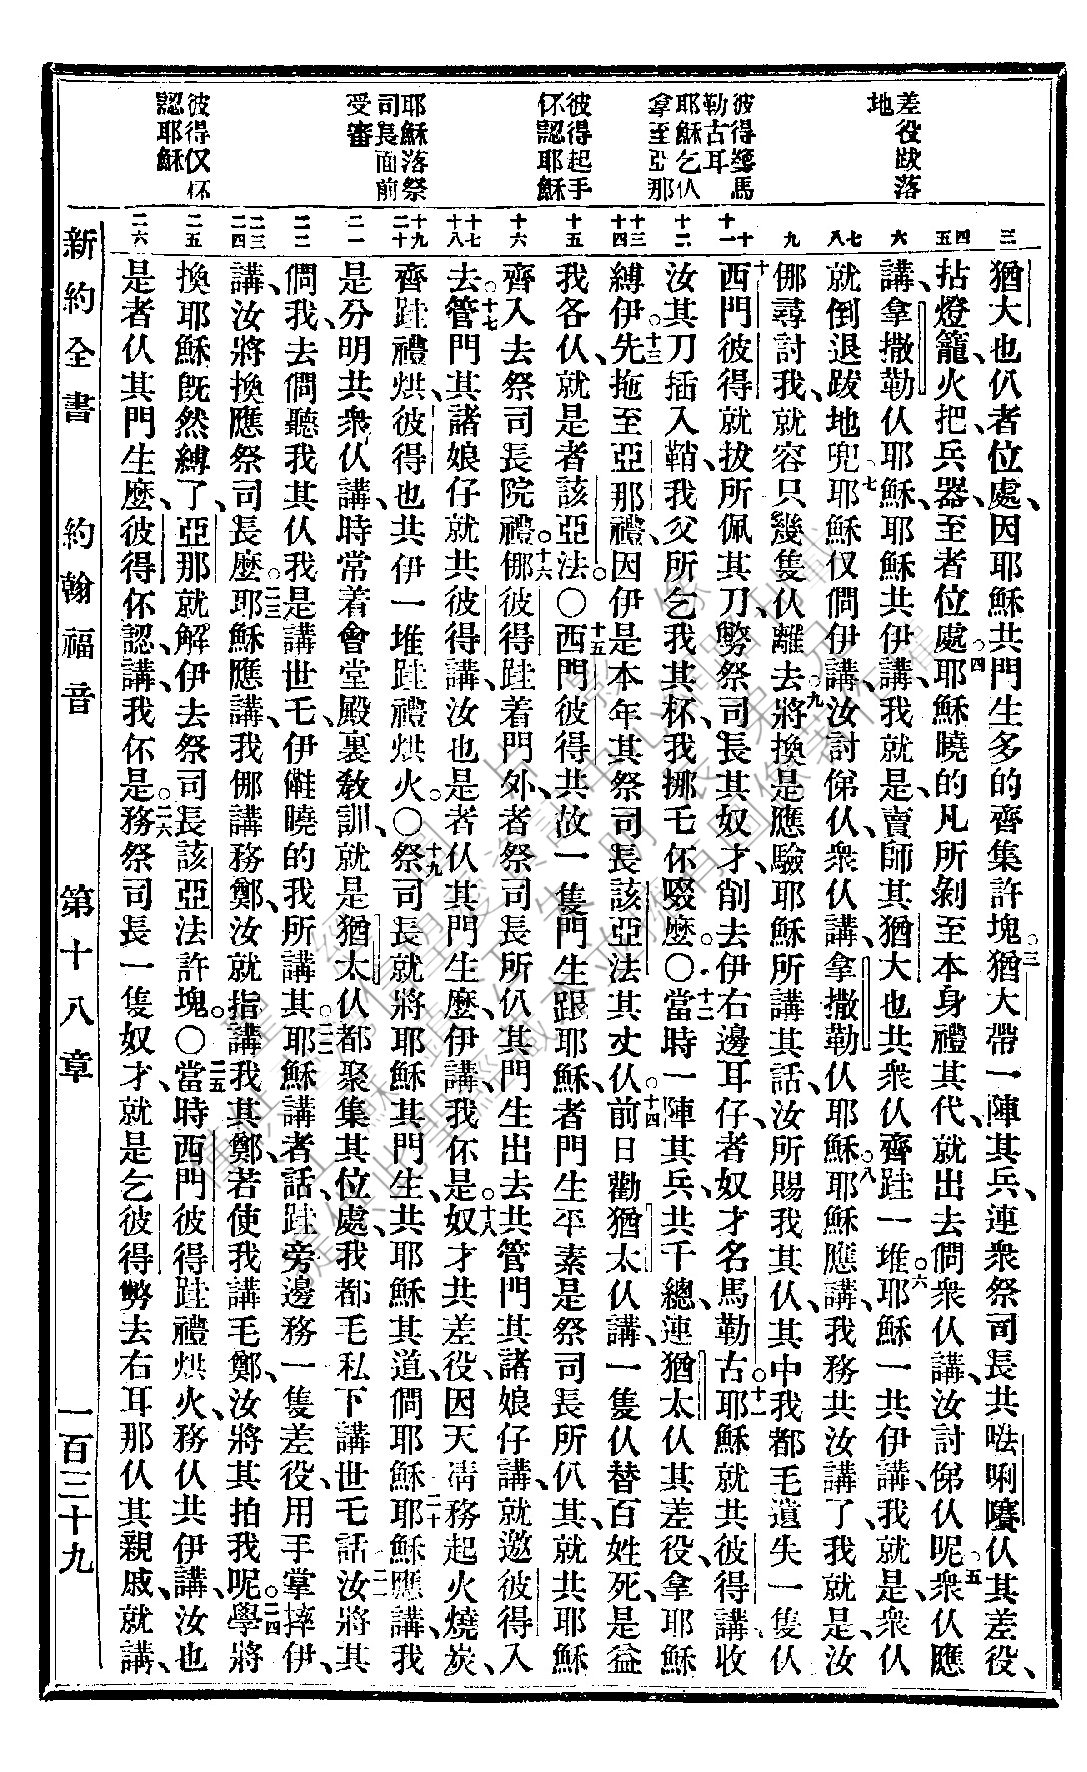 差役跋落
地
彼得𠢕馬
勒古耳
耶穌乞仈
拿至亞那
彼得起手
伓認耶穌
耶穌落祭
司長面前
受審
彼得仅伓
認耶穌
三
四 五
六
七 八
九
十 十一
十二
十三 十四
十五
十六
十七 十八
十九 二十
二一
二二
二三 二四
二五
二六
猶大也仈者位處、因耶穌共門生多的齊集許塊。三猶大帶一陣其兵、連衆祭司長共𠵽唎㘔仈其差役、
拈燈籠、火把、兵器、至者位處。四耶穌曉的凡所剝至本身禮其代、就出去、問衆仈講、汝討俤仈呢。五衆仈應
講、拿撒勒仈耶穌、耶穌共伊講、我就是、賣師其猶大也共衆仈齊跬一堆。六耶穌一共伊講、我就是、衆仈
就倒退跋地兜。七耶穌仅問伊講、汝討俤仈、衆仈講、拿撒勒仈耶穌。八耶穌應講、我務共汝講了、我就是、汝
倻尋討我、就容只幾隻仈離去。九將換是應驗耶穌所講其話、汝所賜我其仈、其中我都毛遺失一隻仈。
十西門彼得就拔所佩其刀、𠢕祭司長其奴才、削去伊右邊耳仔、者奴才名馬勒古。十一耶穌就共彼得講、收
汝其刀插入鞘、我父所乞我其杯、我挪乇伓啜麽。〇十二當時一陣其兵、共千總、連猶太仈其差役、拿耶穌
縛伊。十三先拖至亞那禮、因伊是本年其祭司長該亞法其丈仈。十四前日勸猶太仈講、一隻仈替百姓死、是益
我各仈、就是者該亞法。〇十五西門彼得共故一隻門生跟耶穌、者門生平素是祭司長所仈其、就共耶穌
齊入去祭司長院禮。十六倻彼得跬着門外、者祭司長所仈其門生出去、共管門其諸娘仔講、就邀彼得入
去。十七管門其諸娘仔就共彼得講、汝也是者仈其門生麽、伊講、我伓是。十八奴才共差役、因天凊、務起火燒炭、
齊跬禮烘、彼得也共伊一堆跬禮烘火。〇十九祭司長就將耶穌其門生、共耶穌其道、問耶穌。二十耶穌應講、我
是分明共衆仈講、時常着會堂殿裏教訓、就是猶太仈都聚集其位處、我都毛私下講世毛話。二一汝將其
問我、去問聽我其仈、我是講世乇、伊儺曉的我所講其。二二耶穌講者話、跬旁邊務一隻差役、用手掌摔伊、
講、汝將換應祭司長麽。二三耶穌應講、我倻講務鄭、汝就指講我其鄭、若使我講毛鄭、汝將其拍我呢。二四學將
換耶穌旣然縛了、亞那就解伊去祭司長該亞法許塊。〇二五當時西門彼得跬禮烘火、務仈共伊講、汝也
是者仈其門生麽、彼得伓認、講、我伓是。二六務祭司長一隻奴才、就是乞彼得𠢕去右耳那仈其親戚、就講、
新約全書 約翰福音 第十八章 一百三十九